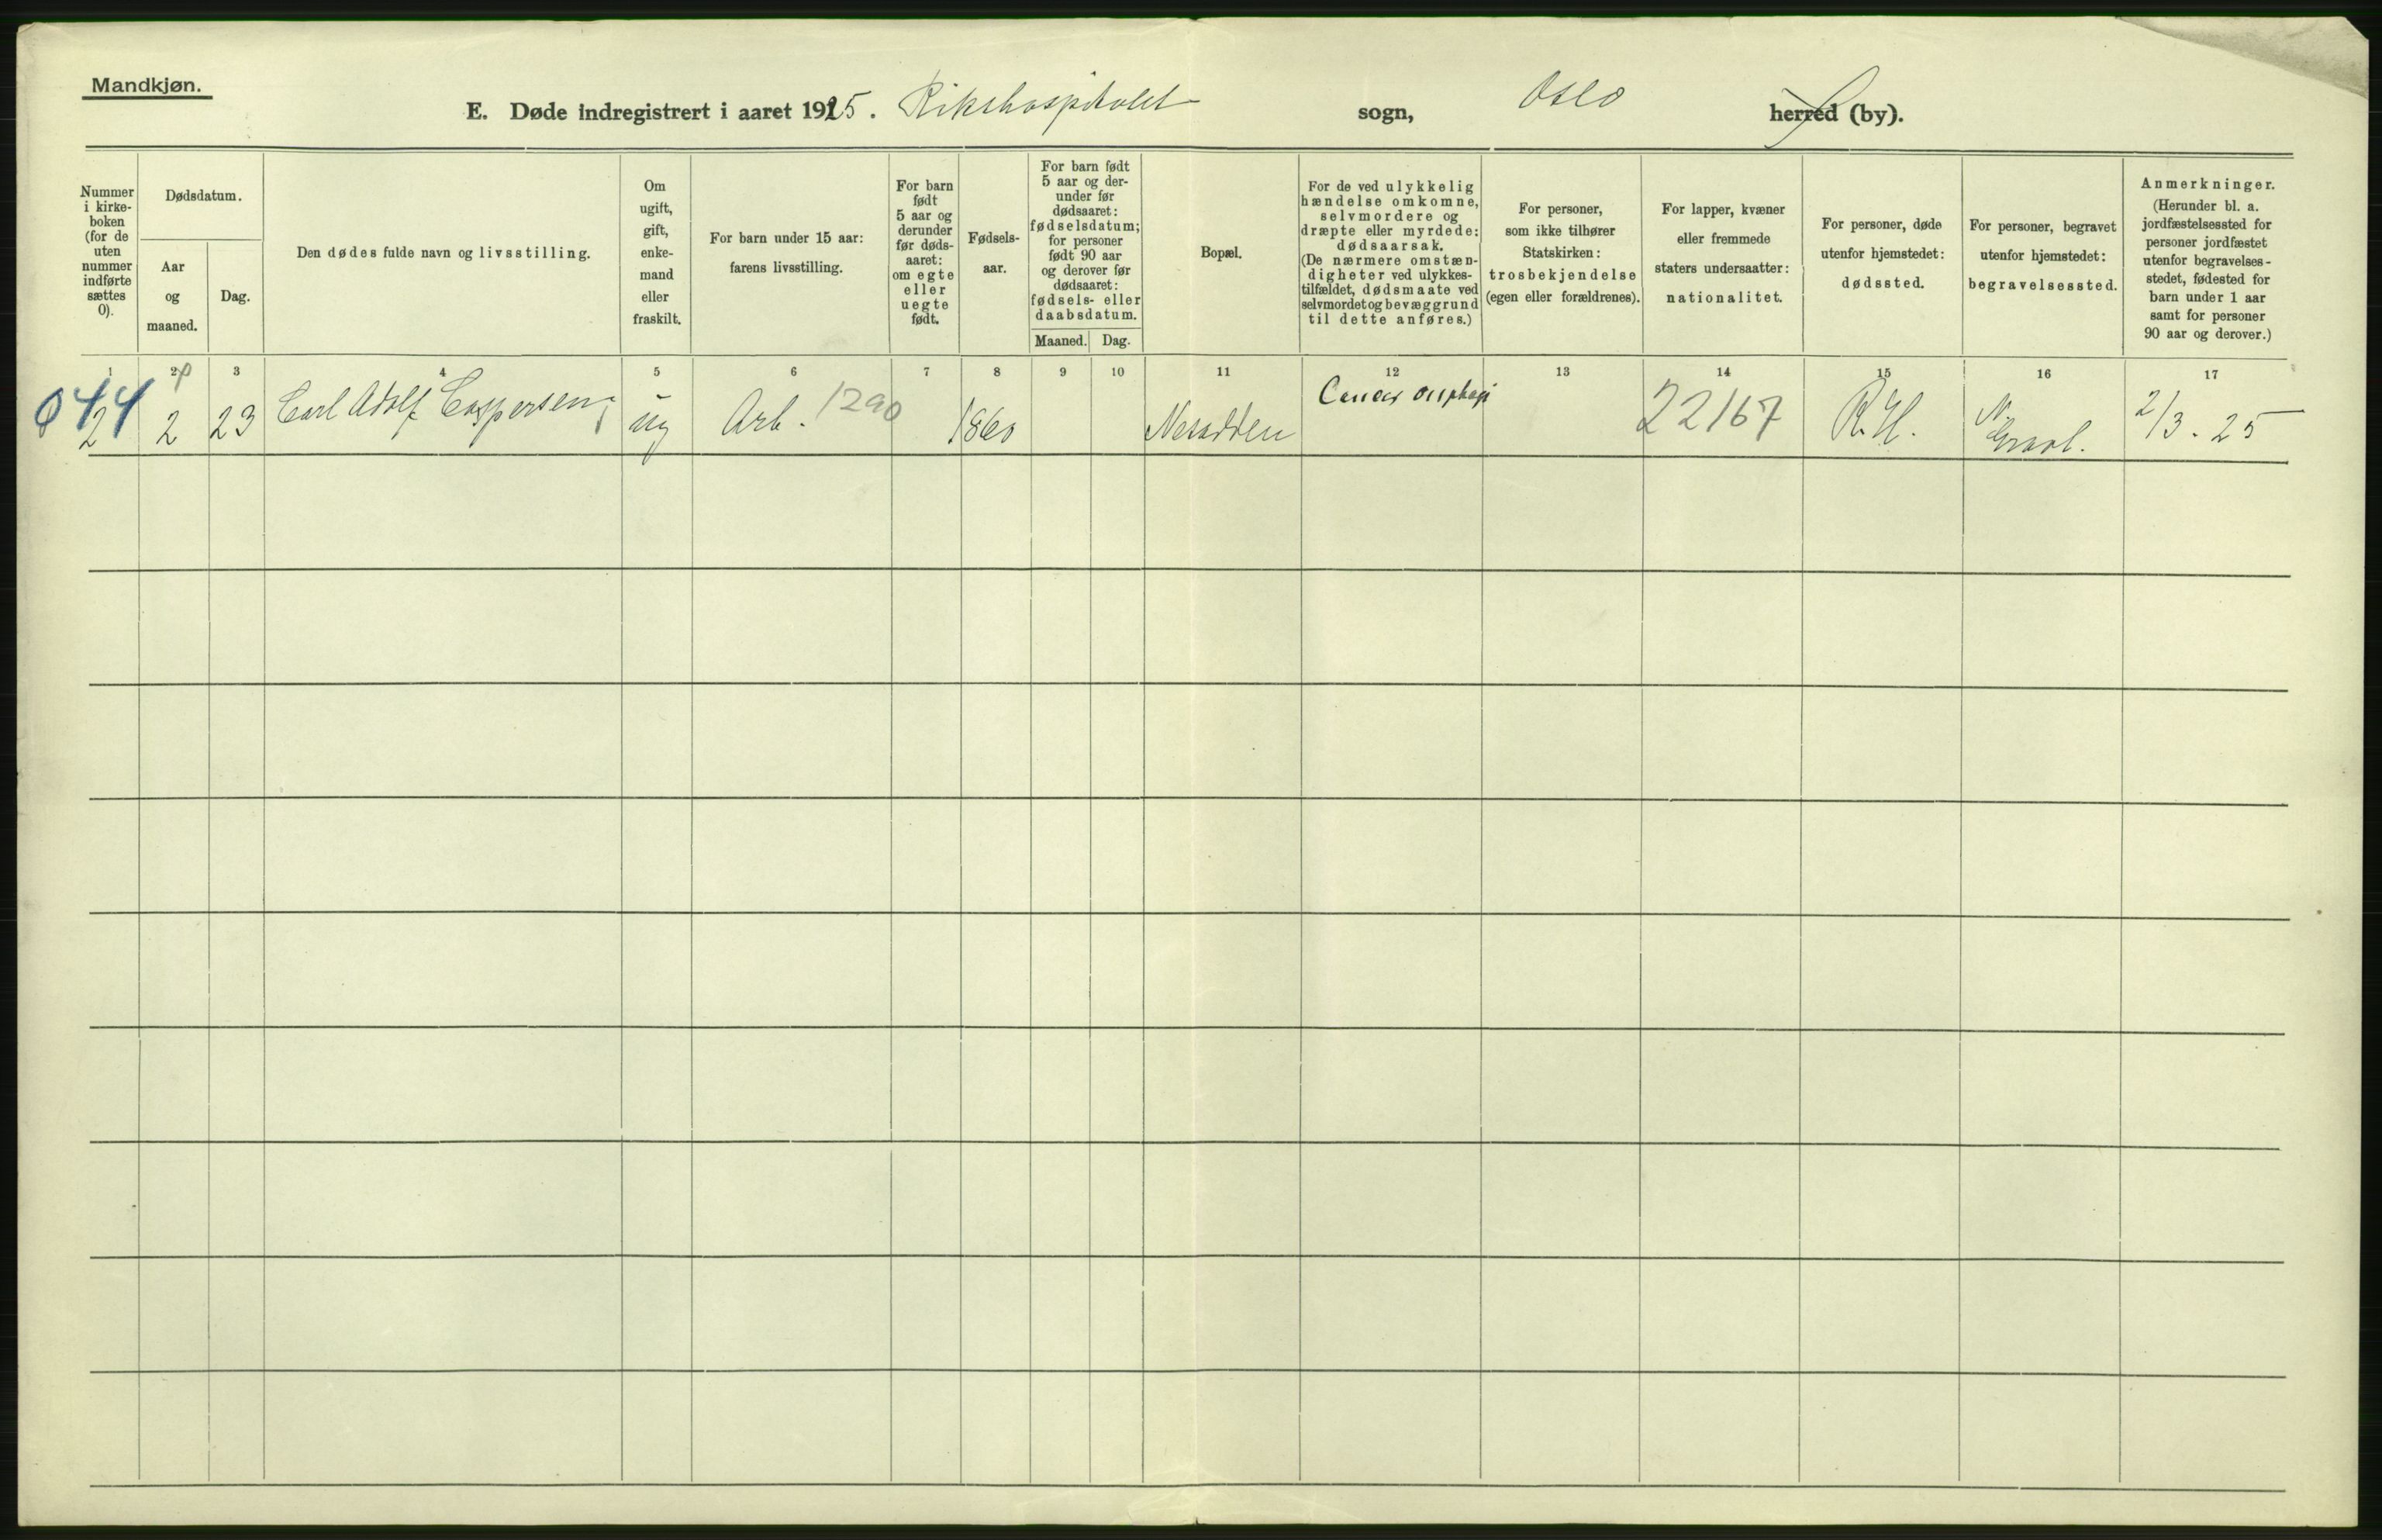 Mandkjøn.
E. Døde indregistrert i aaret 1925. Rikshospitalet sogn, Oslo herred (by).
Nummer
i kirke-
boken
(for de
uten
nummer
indførte
sættes
0).
Dødsdatum.
Aar
og
maaned.
Dag.
Den dødes fulde navn og livsstilling.
Om
ugift,
gift,
enke-
mand
eller
fraskilt.
For barn under 15 aar:
farens livsstilling.
For barn
født
5 aar og
derunder
før døds-
aaret:
om egte
eller
uegte
født.
Fødsels-
aar.
For barn født
5 aar og der-
under før
dødsaaret:
fødselsdatum;
for personer
født 90 aar
og derover før
dødsaaret:
fødsels- eller
daabsdatum.
Maaned.
Dag.
Bopæl.
For de ved ulykkelig
hændelse omkomne,
selvmordere og
dræpte eller myrdede:
dødsaarsak.
(De nærmere omstæn-
digheter ved ulykkes-
tilfældet, dødsmaate ved
selvmordet og bevæggrund
til dette anføres.)
For personer,
som ikke tilhører
Statskirken:
trosbekjendelse
(egen eller forældrenes).
For lapper, kvæner
eller fremmede
staters undersaatter:
nationalitet.
For personer, døde
utenfor hjemstedet:
dødssted.
For personer, begravet
utenfor hjemstedet:
begravelsessted.
Anmerkninger.
(Herunder bl. a.
jordfæstelsessted for
personer jordfæstet
utenfor begravelses-
stedet, fødested for
barn under 1 aar
samt for personer
90 aar og derover.)
1 2 3 4 5 6 7 8 9 10 11 12 13 14 15 16 17
044
2 2 23 Carl Adolf Caspersen ug Arb. 1290 1860 Nesodden Cancer 22167 R.H. N. Gravl. 2/3.25